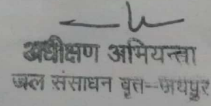 अधीक्षण अभियन्ता
जल संसाधन वृत--जयपुर